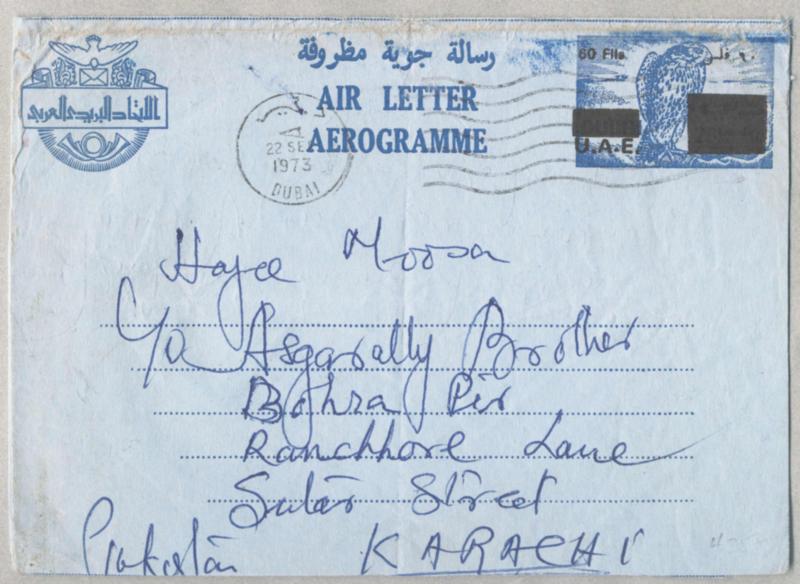 رسالة جوية مظروفة
AIR LETTER
AEROGRAMME
الاتحاد البريدي العربي
60 Fils
٦٠ فلس
U.A.E.
22 SE
1973
DUBAI
Hajee Moosa
C/o Asgarally Brother
Bohra Pir
Ranchhore Lane
Sutar Street
KARACHI
Pakistan